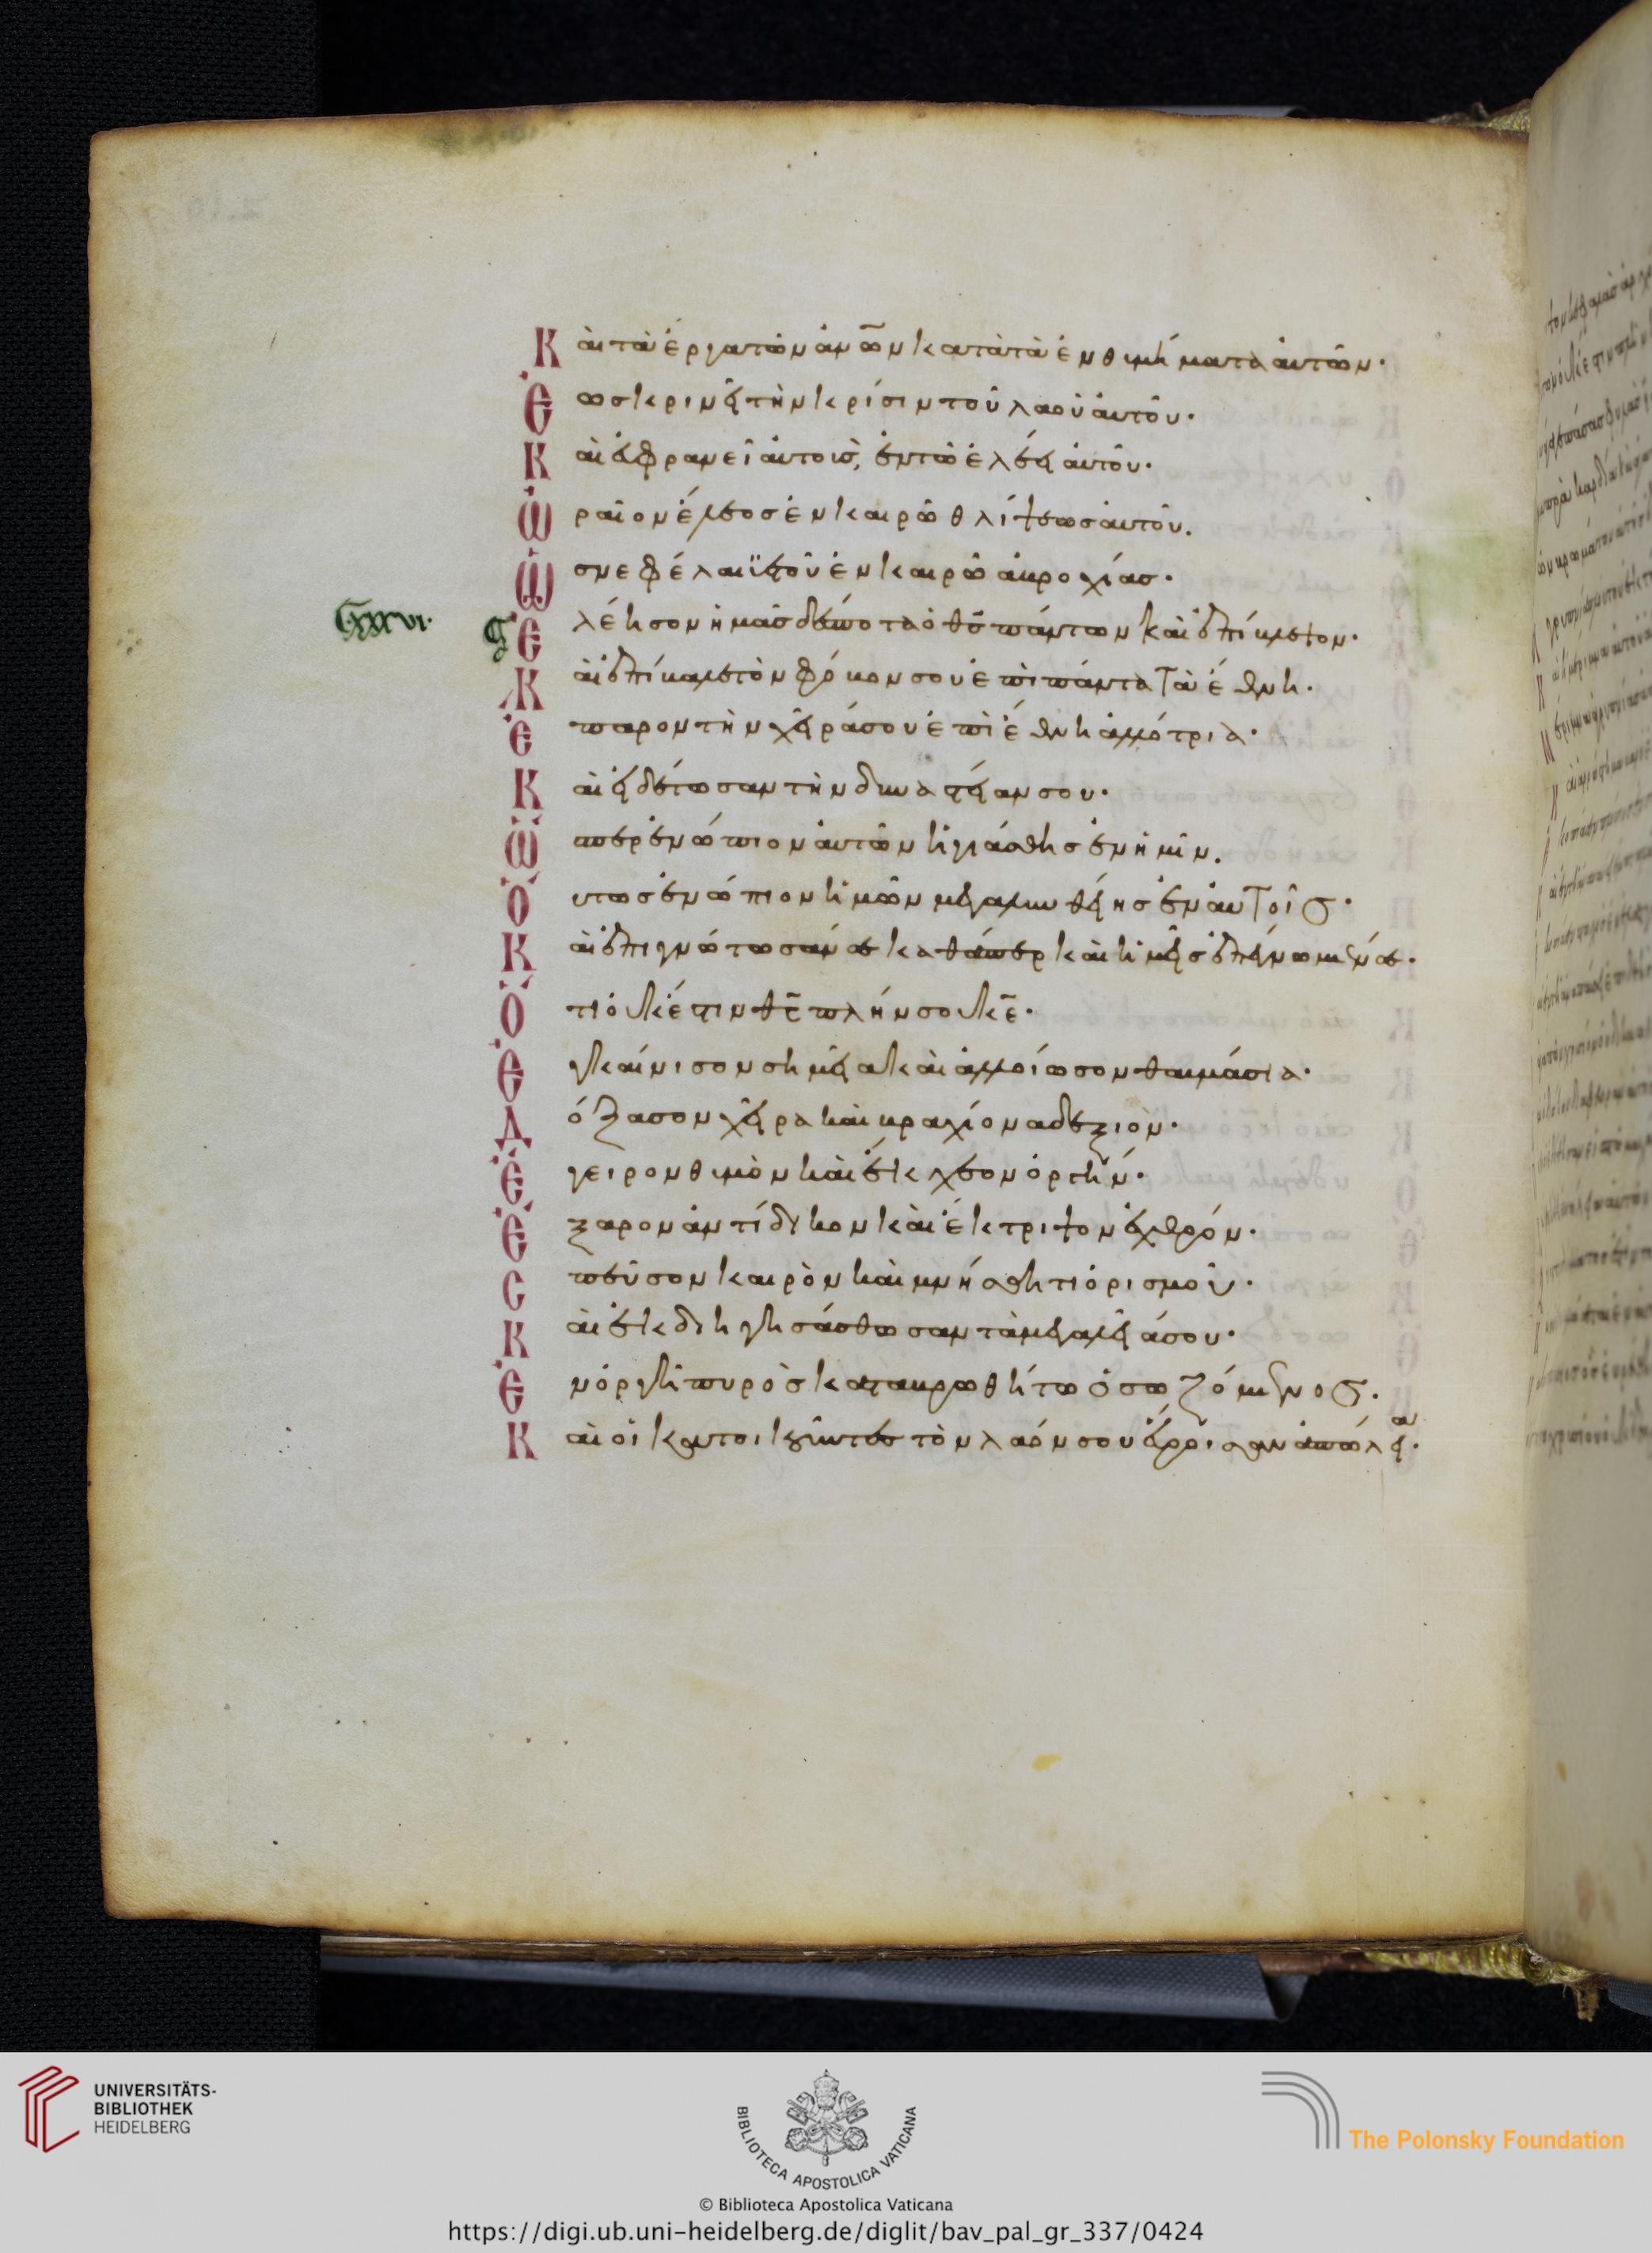 Καὶ τὰ ἔργα τῶν ἀν̅ω̅ν κατὰ τὰ ἐνθυμήματα αὐτῶν·
Ἕως κρινεῖ τὴν κρίσιν τοῦ λαοῦ αὐτοῦ·
Καὶ εὐφρανεῖ αὐτοὺς, ἐν τῶ ἐλέει αὐτοῦ·
Ὡραῖον ἔλεος ἐν καιρῶ θλίψεως αὐτοῦ.
Ὡς νεφέλαι ϋετοῦ ἐν καιρῶ ἀβροχίας·
C̅XXVI· Ἐλέησον ἡμᾶς δέσποτα ὁ θς̅ πάντων καὶ ἐπίβλεψον·
Καὶ ἐπίβαλε τὸν φόβον σου ἐπὶ πάντα τὰ ἔθνη·
Ἔπαρον τὴν χεῖρά σου ἐπὶ ἔθνη ἀλλότρια·
Καὶ εἰδέτωσαν τὴν δυναστείαν σου·
Ὥσπερ ἐνώπιον αὐτῶν ἡγιάσθης ἐν ἡμῖν.
Οὕτως ἐνώπιον ἡμῶν μεγαλυνθείης ἐν αὐτοῖς·
Καὶ ἐπιγνώτωσάν σε καθάπερ καὶ ἡμεῖς ἐπέγνωμέν σε·
Ὅτι οὐκ ἔστιν θς̅ πλήν σου κε̅·
Ἐγκαίνισον σημεῖα καὶ ἀλλοίωσον θαυμάσια·
Δόξασον χεῖρα καὶ βραχίονα δεξιὸν·
Ἔγειρον θυμὸν καὶ ἔκχεον ὀργήν·
Ἔξαρον ἀντίδικον καὶ ἔκτριψον ἐχθρόν·
Σπεῦσον καιρὸν καὶ μνήσθητι ὁρισμοῦ·
Καὶ ἐκδιηγησάσθωσαν τὰ μεγαλεῖά σου·
Ἐν ὀργῆ πυρὸς καταβρωθήτω ὁ σωζόμενος·
Καὶ οἱ κακοῦντες τὸν λαόν σου εὕροισαν ἀπώλειαν·
UNIVERSITÄTS-
BIBLIOTHEK
HEIDELBERG
BIBLIOTECA APOSTOLICA VATICANA
The Polonsky Foundation
© Biblioteca Apostolica Vaticana
https://digi.ub.uni-heidelberg.de/diglit/bav_pal_gr_337/0424